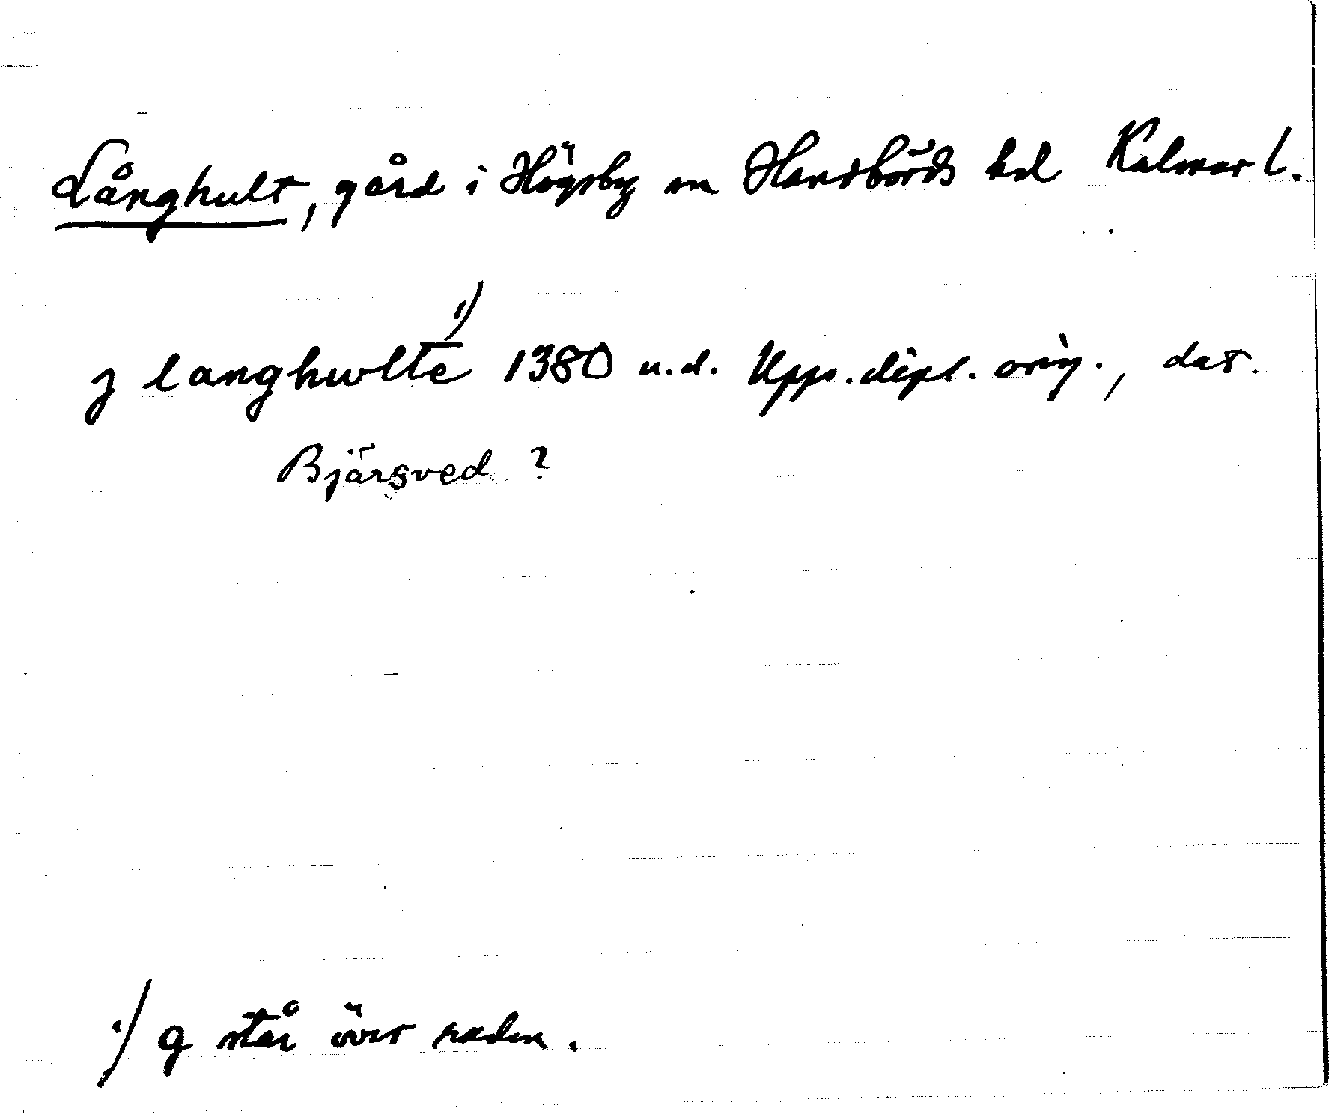 Långhult, gård i Högsby sn Handbörds hd Kalmar l.
j langhwlte ¹) 1380 u.d. Upps. dipl. orig., dat.
Bjärsved ?
¹) g står över raden.